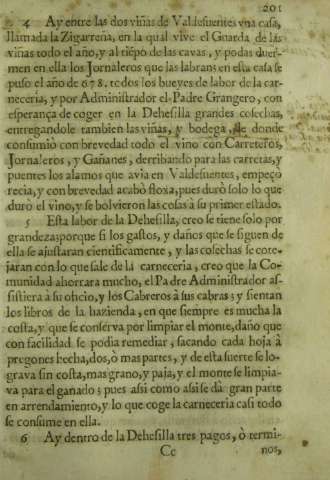 201
4 Ay entre las dos viñas de Valdefuentes vna casa,
llamada la Zigarreña, en la qual vive el Guarda de las
viñas todo el año, y al tiẽpo de las cavas, y podas duer-
men en ella los Jornaleros que las labran: en esta casa se
puso el año de 678. todos los bueyes de labor de la car-
neceria, y por Administrador el Padre Grangero, con
esperança de coger en la Dehesilla grandes cosechas,
entregandole tambien las viñas, y bodega, de donde
consumiò con brevedad todo el vino con Carreteros,
Jornaleros, y Gañanes, derribando para las carretas, y
puentes los alamos que avia en Valdefuentes, empeço
recia, y con brevedad acabò floxa, pues durò solo lo que
duro el vino, y se bolvieron las cosas à su primer estado.
5 Esta labor de la Dehesilla, creo se tiene solo por
grandeza; porque si los gastos, y daños que se siguen de
ella se ajustaran cientificamente, y las cosechas se cote-
jaran con lo que sale de la carneceria, creo que la Co-
munidad ahorrara mucho, el Padre Administrador as-
sistiera à su oficio, y los Cabreros à sus cabras; y sientan
los libros de la hazienda, en que siempre es mucha la
costa, y que se conserva por limpiar el monte, daño que
con facilidad se podia remediar, sacando cada hoja à
pregones hecha, dos, ò mas partes, y de esta suerte se lo-
grava sin costa, mas grano, y paja, y el monte se limpia-
va para el ganado; pues assi como assi se dà gran parte
en arrendamiento, y lo que coge la carneceria casi todo
se consume en ella.
6 Ay dentro de la Dehesilla tres pagos, ò termi-
Cc nos,